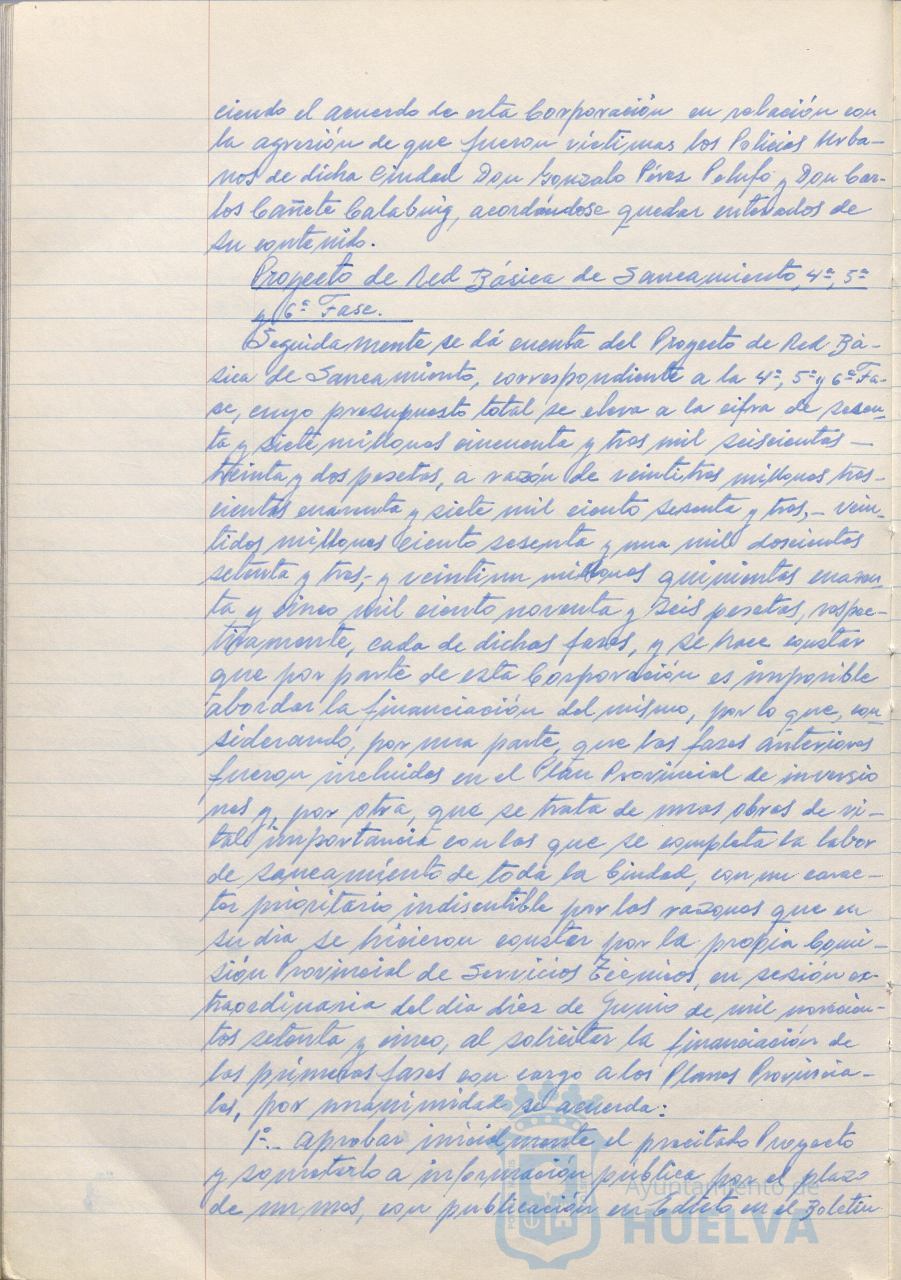 ciendo el acuerdo de esta Corporación en relación con
la agresión de que fueron víctimas los Policias Urba-
nos de dicha Ciudad Don Gonzalo Pérez Pelufo y Don Car-
los Cañete Calabuig, acordándose quedar enterados de
su contenido.
Proyecto de Red Básica de Saneamiento, 4ª, 5ª
y 6ª Fase.
Seguidamente se dá cuenta del Proyecto de Red Bá-
sica de Saneamiento, correspondiente a la 4ª, 5ª y 6ª Fa-
se, cuyo presupuesto total se eleva a la cifra de sesen-
ta y siete millones cincuenta y tres mil seiscientas —
treinta y dos pesetas, a razón de veintitres millones tres-
cientas cuarenta y siete mil ciento sesenta y tres,- vein-
tidos millones ciento sesenta y una mil doscientas
setenta y tres,- y veintiun millones quinientas cuaren-
ta y cinco mil ciento noventa y seis pesetas, respec-
tivamente, cada de dichas fases, y se hace constar
que por parte de esta Corporación es imposible
abordar la financiación del mismo, por lo que, con-
siderando, por una parte, que las fases anteriores
fueron incluidas en el Plan Provincial de inversio
nes y, por otra, que se trata de unas obras de vi-
tal importancia con las que se completa la labor
de saneamiento de toda la Ciudad, con un carac-
ter prioritario indiscutible por las razones que en
su dia se hicieron constar por la propia Comi-
sión Provincial de Servicios Técnicos, en sesión ex-
traordinaria del dia diez de Junio de mil novecien-
tos setenta y cinco, al solicitar la financiación de
las primeras fases con cargo a los Planes Provincia-
les, por unanimidad se acuerda:
1º.- Aprobar inicialmente el precitado Proyecto
y someterlo a información pública por el plazo
de un mes, con publicación en Edicto en el Boletín
Ayuntamiento de
HUELVA